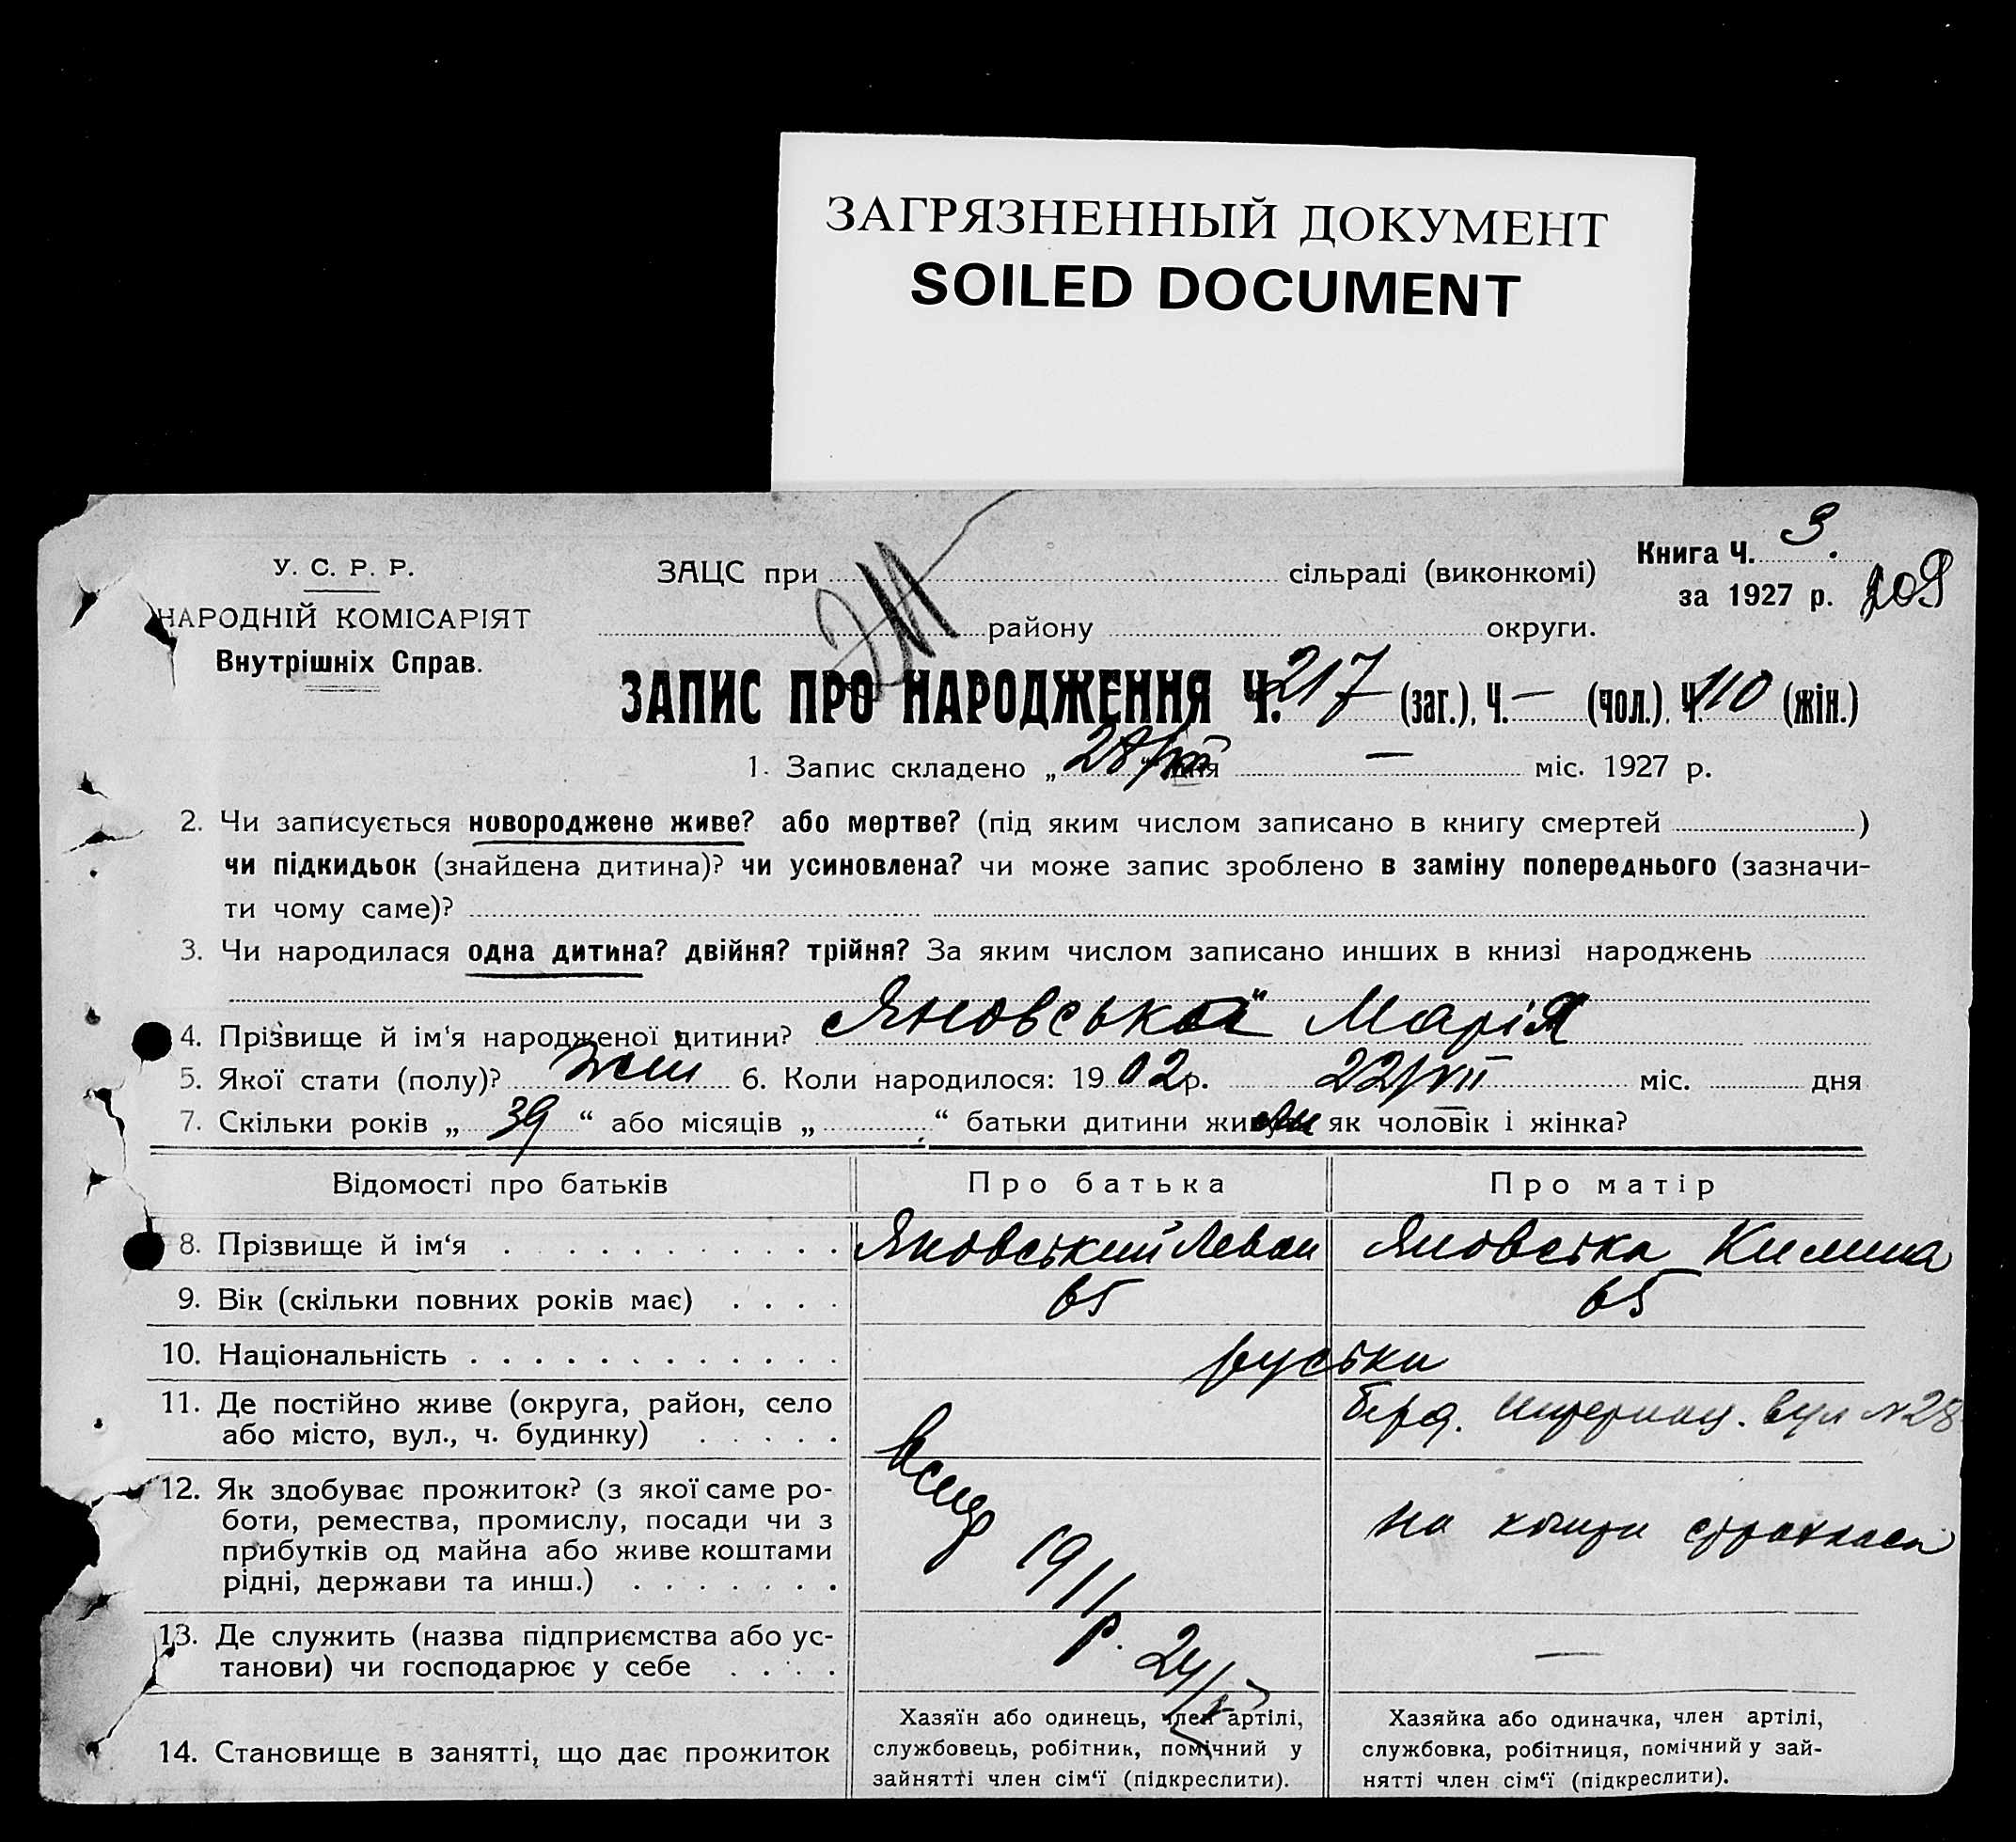 ЗАГРЯЗНЕННЫЙ ДОКУМЕНТ
SOILED DOCUMENT
У. С. Р. Р.
НАРОДНІЙ КОМІСАРІЯТ
Внутрішніх Справ.
ЗАЦС при сільраді (виконкомі)
району округи.
Книга Ч. 3.
за 1927 р. 209
ЗАПИС ПРО НАРОДЖЕННЯ Ч. 217 (заг.), Ч. — (чол.). Ч. 110 (жін.)
1. Запис складено „ 28/XII “ дня — міс. 1927 р.
2. Чи записується новороджене живе? або мертве? (під яким числом записано в книгу смертей )
чи підкидьок (знайдена дитина)? чи усиновлена? чи може запис зроблено в заміну попереднього (зазначи-
ти чому саме)?
3. Чи народилася одна дитина? двійня? трійня? За яким числом записано инших в книзі народжень
4. Прізвище й ім‘я народженої дитини? Яновська Марія
5. Якої стати (полу)? жін 6. Коли народилося: 1902 р. 22/VII міс. дня
7. Скільки років „ 39 “ або місяців „ “ батьки дитини живуть як чоловік і жінка?
Відомості про батьків
Про батька
Про матір
8. Прізвище й ім‘я
Яновський Леван
Яновська Килина
9. Вік (скільки повних років має)
65
65
10. Національність
руськи
11. Де постійно живе (округа, район, село
або місто, вул., ч. будинку)
Берд. вул №28
12. Як здобуває прожиток? (з якої саме ро-
боти, ремества, промислу, посади чи з
прибутків од майна або живе коштами
рідні, держави та инш.)
1911
р. 24/
на кошти страхкаси
13. Де служить (назва підприємства або ус-
танови) чи господарює у себе
—
14. Становище в занятті, що дає прожиток
Хазяїн або одинець, член артілі,
службовець, робітник, помічний у
зайнятті член сім‘ї (підкреслити).
Хазяйка або одиначка, член артілі,
службовка, робітниця, помічний у зай-
нятті член сім‘ї (підкреслити).